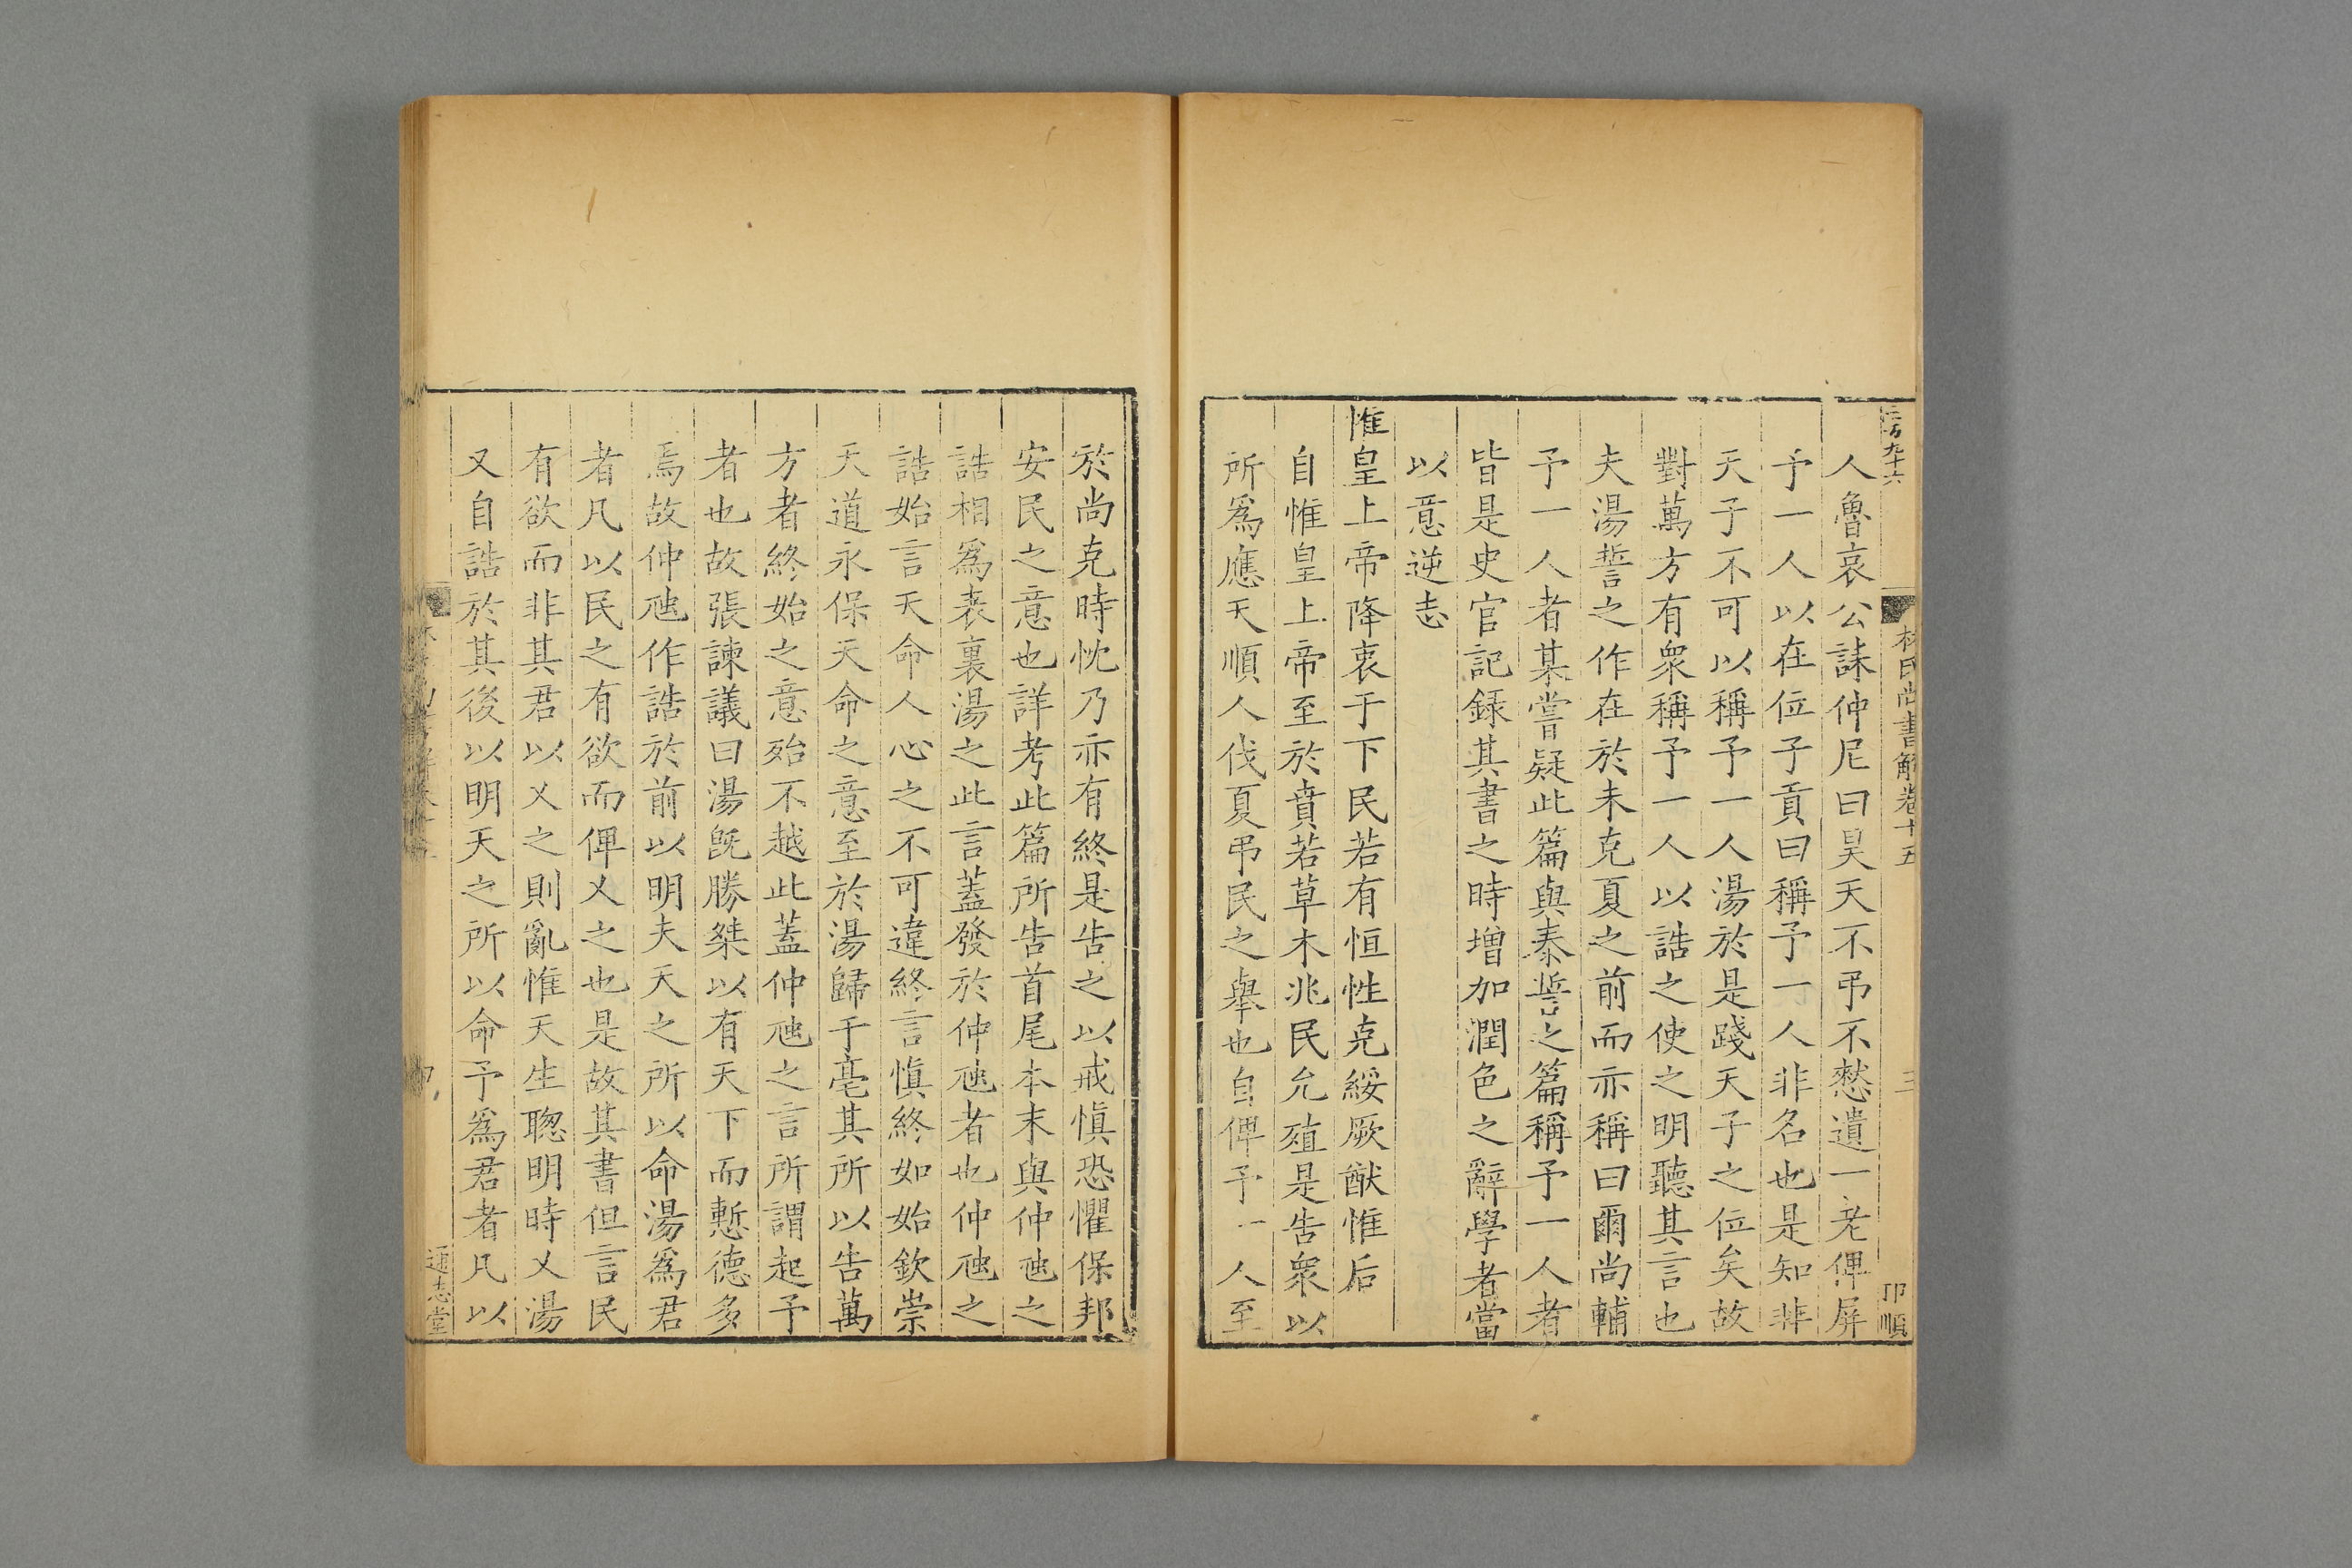 林氏尚書解卷十五
三
卬順
人魯哀公誄仲尼曰昊天不弔不憖遺一老俾屏
予一人以在位子貢曰稱予一人非名也是知非
天子不可以稱予一人湯於是踐天子之位矣故
對萬方有衆稱予一人以誥之使之明聽其言也
夫湯誓之作在於未克夏之前而亦稱曰爾尚輔
予一人者某嘗疑此篇與泰誓之篇稱予一人者
皆是史官記録其書之時增加潤色之辭學者當
以意逆志
惟皇上帝降衷于下民若有恒性克綏厥猷惟后
自惟皇上帝至於賁若草木兆民允殖是告衆以
所爲應天順人伐夏弔民之舉也自俾予一人至
於尚克時忱乃亦有終是告之以戒愼恐懼保邦
安民之意也詳考此篇所告首尾本末與仲虺之
誥相爲表裏湯之此言蓋發於仲虺者也仲虺之
誥始言天命人心之不可違終言愼終如始欽崇
天道永保天命之意至於湯歸于亳其所以告萬
方者終始之意殆不越此蓋仲虺之言所謂起予
者也故張諫議曰湯旣勝桀以有天下而慙德多
焉故仲虺作誥於前以明夫天之所以命湯爲君
者凡以民之有欲而俾乂之也是故其書但言民
有欲而非其君以乂之則亂惟天生聰明時乂湯
又自誥於其後以明天之所以命予爲君者凡以
通志堂